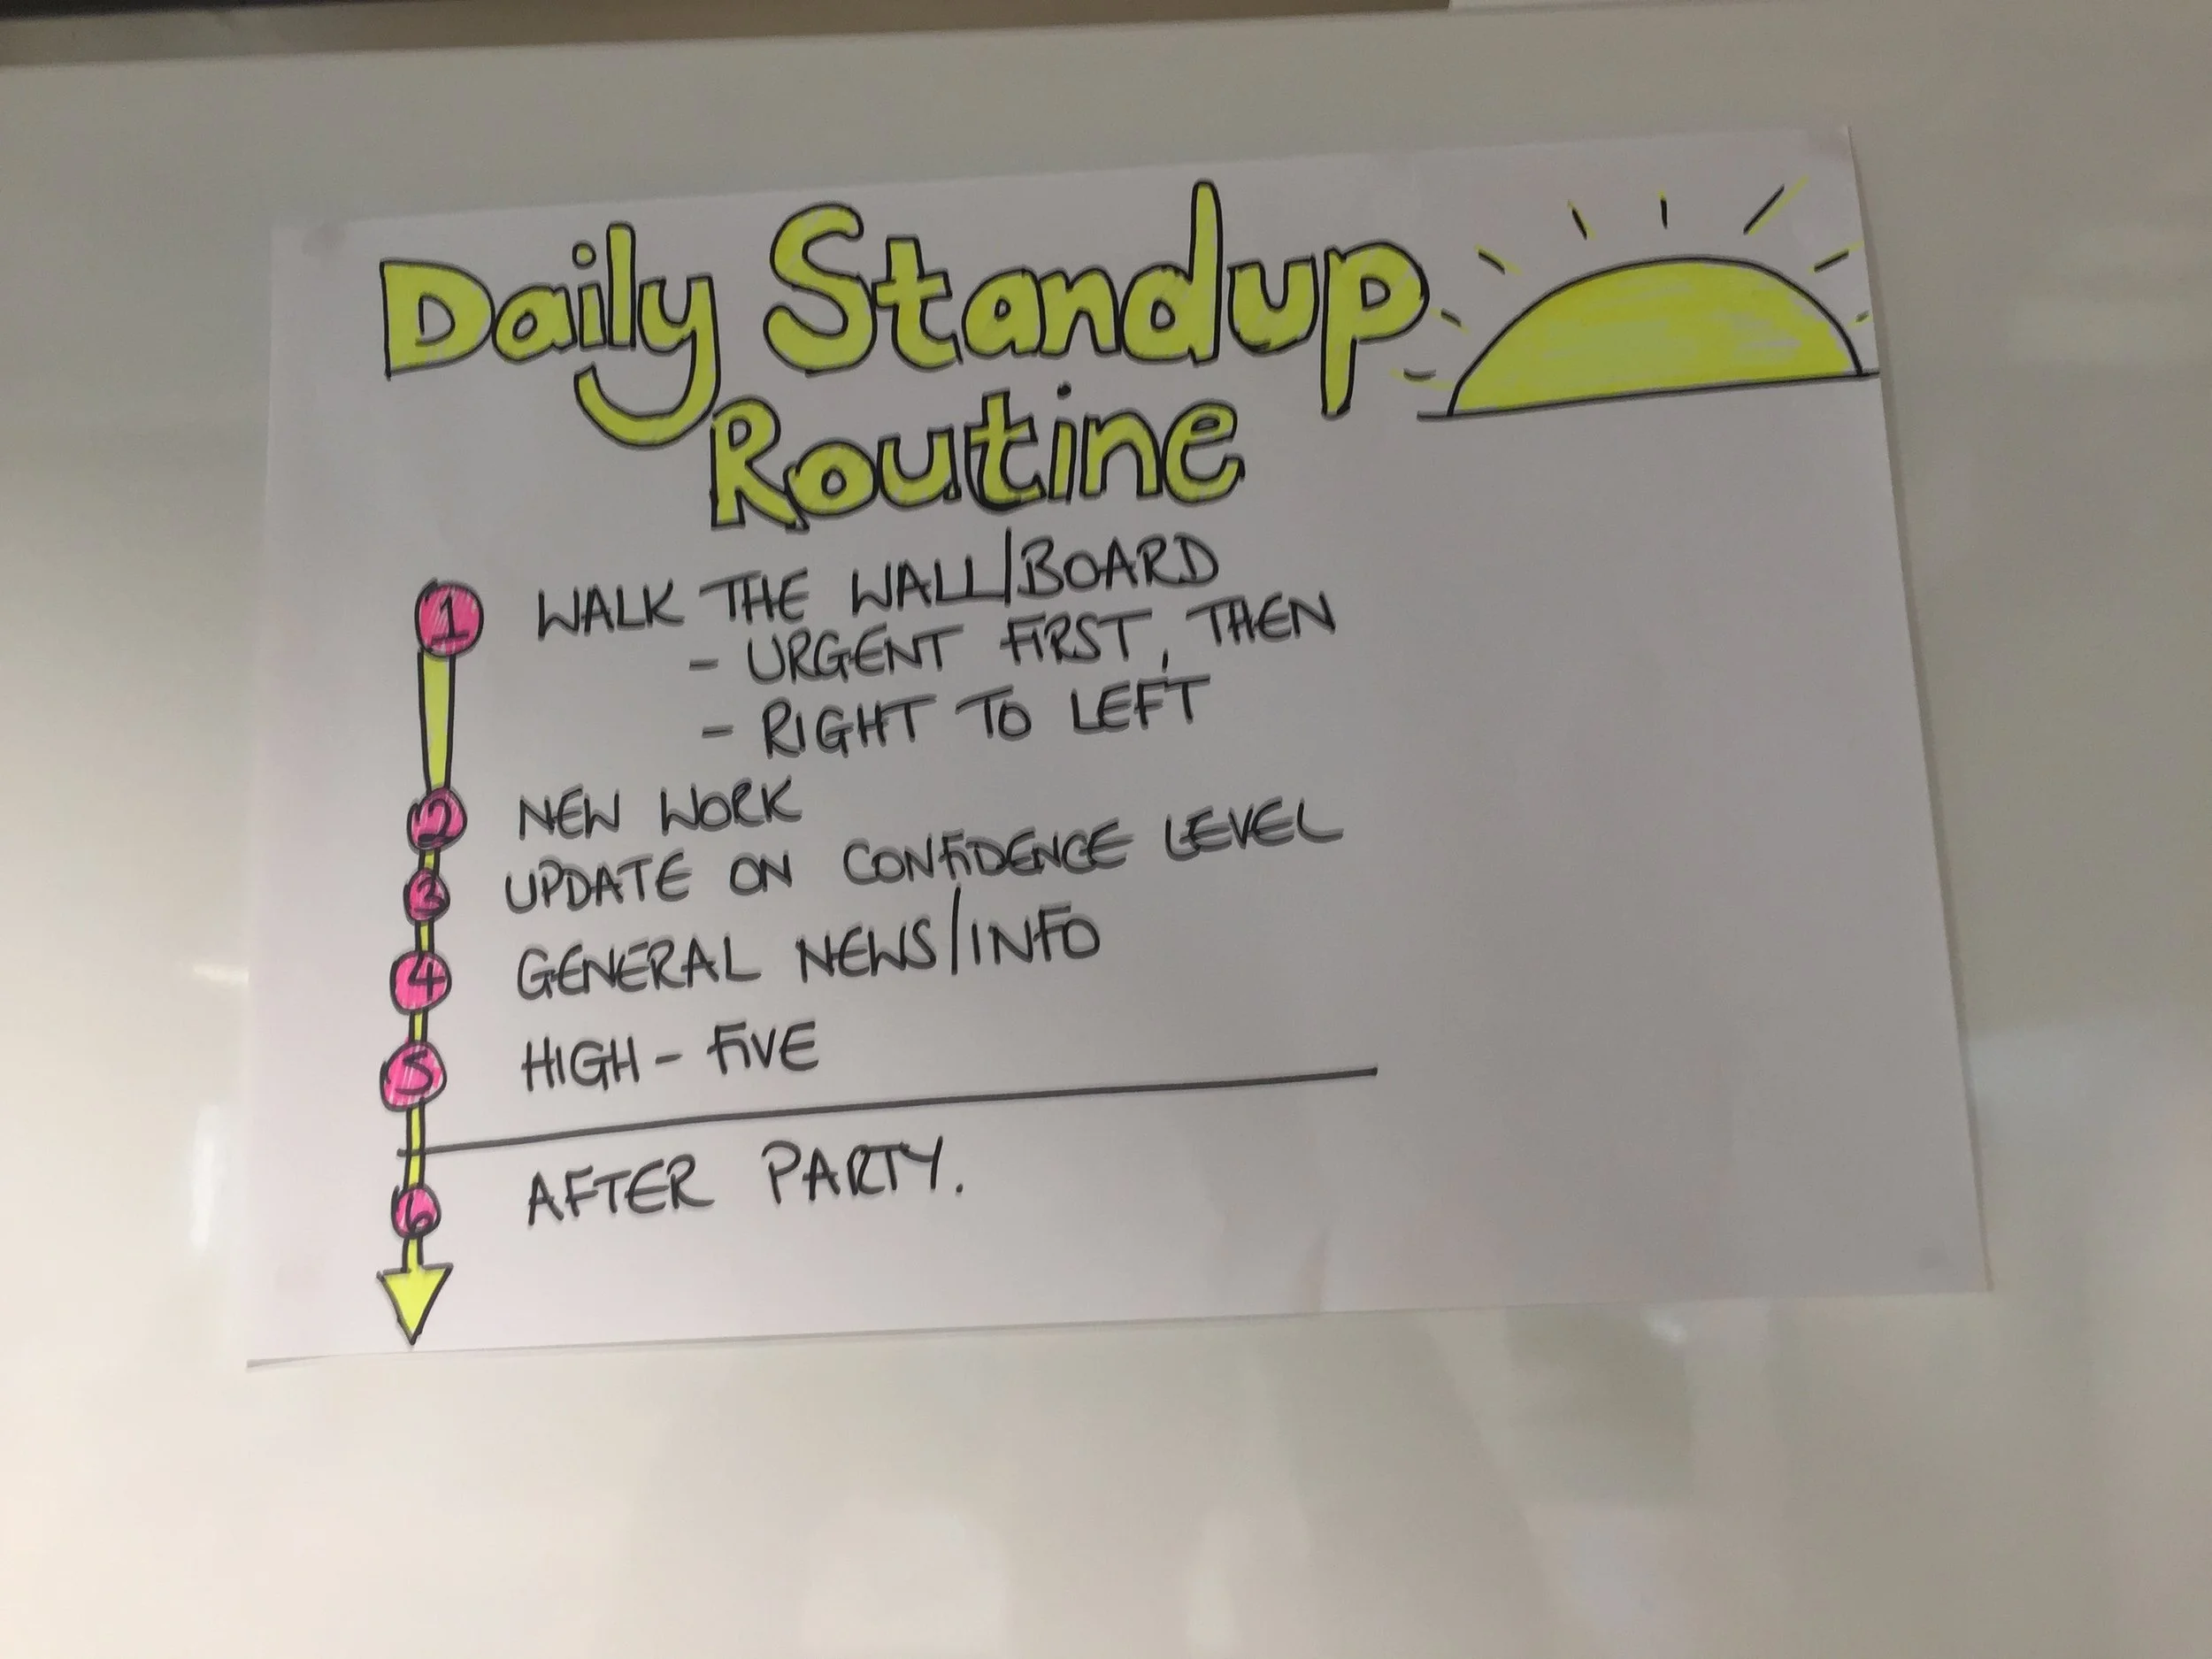 Daily Standup
Routine
1 WALK THE WALL/BOARD
- URGENT FIRST, THEN
- RIGHT TO LEFT
2 NEW WORK
3 UPDATE ON CONFIDENCE LEVEL
4 GENERAL NEWS/INFO
5 HIGH-FIVE
6 AFTER PARTY.